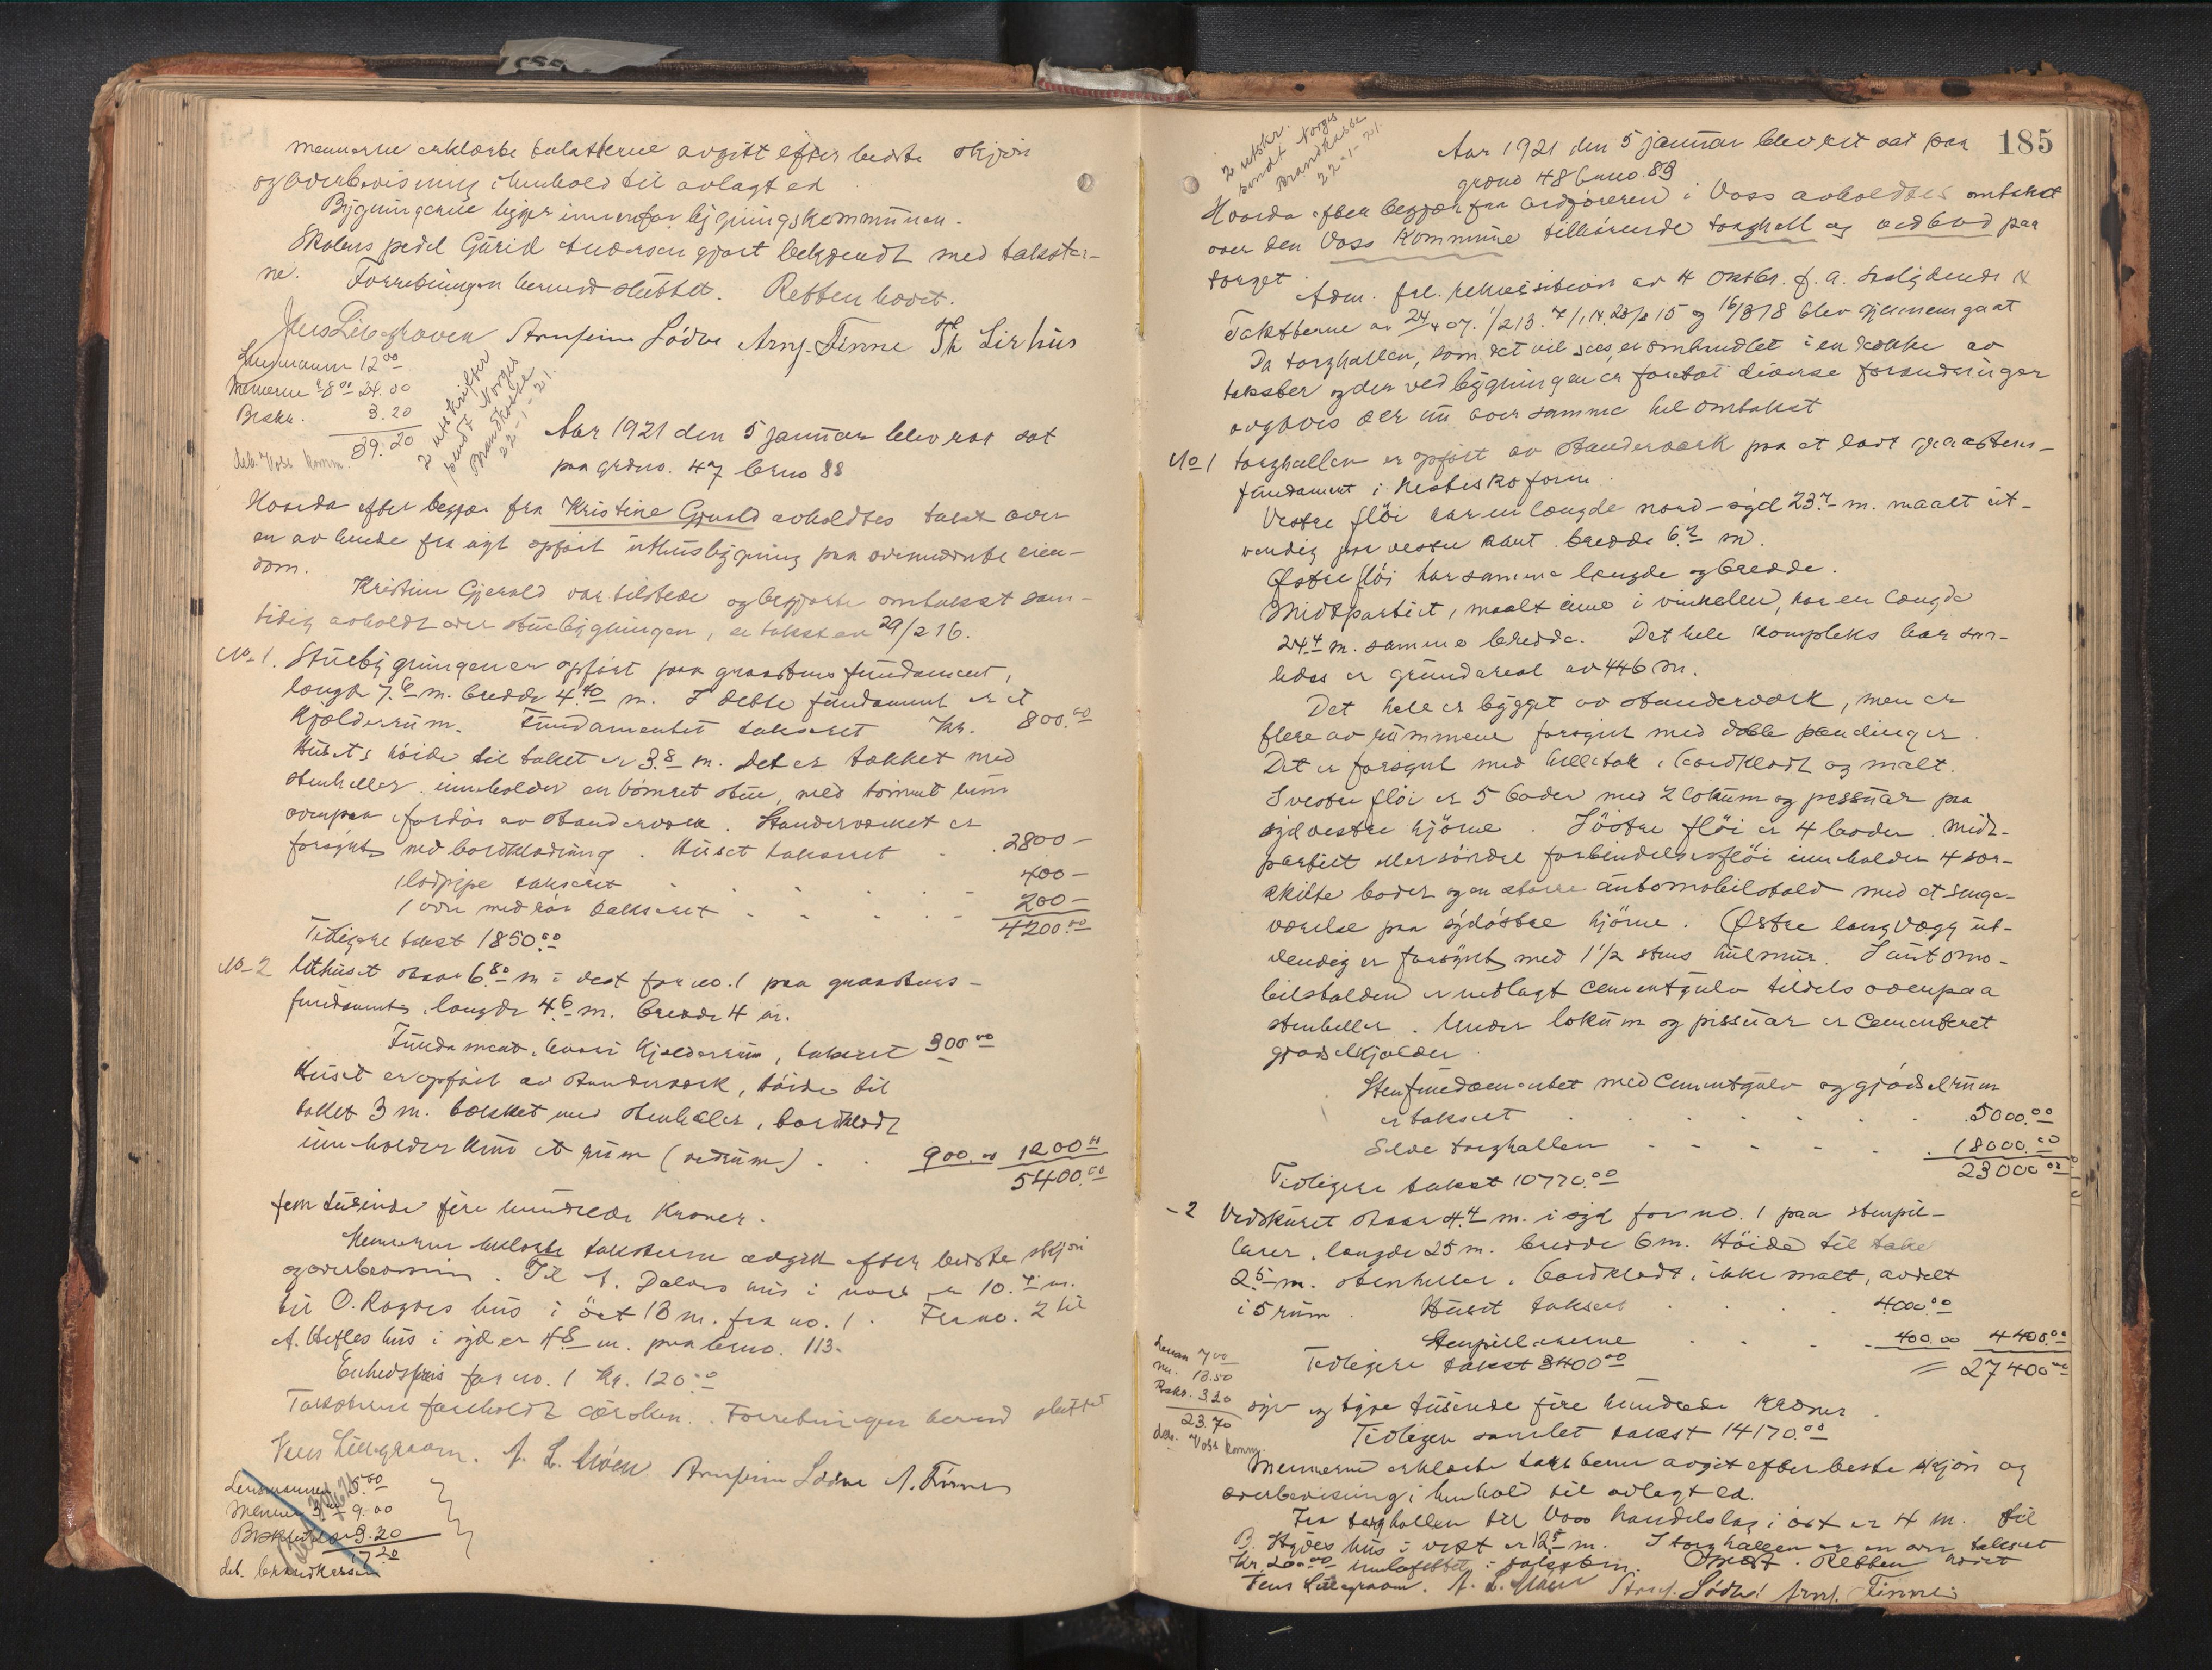 mennerne erklærte taksterne avgitt efter bedste skjøn
og overbevisning i henhold til avlagt ed
Bygningerne ligger innenfor bygningskommunen.
Skolens pedel Gurid Anderson gjort bekjendt med takster-
ne. Forretningen hermed sluttet. Retten hævet.
Jens Lillegraven Arnfinn Lødve Arnf. Finne Th Lirhus
Lensmann 12 00
Mennerne 8 00 24.00
Brskr. 3.20
39.20
deb. Voss komm.
2 utskrifter
sendt Norges
Brandkasse
22-1-21.
Aar 1921 den 5 januar blev ret sat
paa grdno. 47 bruno 88
Hvorda efter begjær fra Kristine Gjerald avholdtes takst over
en av hende fra nyt opført uthusbygning paa ovennævnte eien-
dom.
Kristine Gjerald var tilstede og begjærte omtakst sam-
tidig avholdt over stuebygningen, se takst av 29/2 16.
No 1. Stuebygningen er opført paa graastens fundament,
længde 7.6 m. bredde 4.40 m. I dette fundament er et
kjælderrum. Fundamentet taksert Kr. 800.00
Husets høide til taket er 3.8 m. Det er tækket med
stenheller. inneholder en tømret stue, med tømret rum
ovenpaa i fordør av standerværk. Standerværket er
forsynt med bordklædning. Huset taksert 2800 —
1 ladpipe taksert 400 —
1 ovn med rør taksert 200 —
4200.00
Tidligere takst 1850.00
No 2 Uthuset staar 6.80 m i vest for no. 1 paa graastens-
fundament, længde 4.6 m. bredde 4 m.
Fundament, hvori kjælderrum, taksert 300 00
Huset er opført av standerværk, høide til
taket 3 m. tækket med stenheller, bordklædt
inneholder kun et rum (vedrum) 900.00 1200 00
5400.00
fem tusinde fire hundrede kroner.
Mennerne erklærte taksterne avgitt efter bedste skjøn
og overbevisning. Til A. Dalves hus i nord er 10.4 m.
til O. Rognes hus i øst 13 m. fra no. 1. Fra no. 2 til
A. Utfles hus i syd er 4.8 m. paa bruno. 113.
Enhedspris for no. 1 Kr. 120.00
Taksterne foreholdt eieren. Forretningen hermed sluttet
Jens Lillegraven. A. L. Moen Arnfinn Lødve A. Finne
Lensmannen 5.00
Menner 3 00 9.00
Brskr 3.20
17.20
deb. brandkassen
185
2 utskr.
sendt Norges
Brandkasse
22-1-21.
Aar 1921 den 5 januar blev ret sat paa
grdno 48 bruno. 89
Hvorda efter begjær fra ordføreren i Voss avholdtes omtakst
over den Voss Kommune tilhørende torghall og vedbod paa
torget.
Adm. frl. rekvisition av 4 oktbr. f. a. 
Taksterne av 24/4 07. 1/2 13. 7/1 14. 23/2 15 og 16/3 18 blev gjennemgaat
Da torghallen, som det vil sees, er omhandlet i en række av
takster og der ved bygningen er foretat diverse forandringer
avgives der nu over samme hel omtakst
No 1 Torghallen er opført av standerværk paa et lavt graastens-
fundament i hesteskoform.
Vestre fløi har en længde nord-syd 23.4 m. maalt ut-
vendig paa vestre kant. bredde 6.2 m.
Østre fløi har samme længde og bredde.
Midtpartiet, maalt inne i vinkelen, har en længde
24.4 m. samme bredde. Det hele kompleks har saa-
ledes et grundareal av 446 m.
Det hele er bygget av standerværk, men er
flere av rummene forsynt med doble pandinger.
Det er forsynt med helletak, bordklædt og malt.
I vestre fløi er 5 boder med 2 lokum og pissuar paa
sydvestre hjørne. I østre fløi er 4 boder. Midt-
partiet eller søndre forbindelsesfløi inneholder 4 sær-
skilte boder og en større automobilstald med et senge-
værelse paa sydøstre hjørne. Østre langvægg ut-
vendig er forsynt med 1 1/2 stens hulmur. I automo-
bilstalden er nedlagt cementgulv tildels ovenpaa
stenheller. Under lokum og pissuar er cementeret
gjødselkjælder
Stenfundamentet med cementgulv og gjødselrum
er taksert 5000.00
Selve torghallen 18000.00
23000 00
Tidligere takst 10770.00
- 2 Vedskuret staar 4.4 m. i syd for no. 1 paa stenpil-
larer, længde 25 m. bredde 6 m. Høide til taket
2.5 m. stenheller, bordklædt, ikke malt, avdelt
i 5 rum. Huset taksert 4000.00
Stenpillarerne 400.00 4400.00
Tidligere takst 3400 00 = 27400 00
syv og tyve tusinde fire hundrede kroner.
Tidligere samlet takst 14170.00
Lensm 7 00
m. 13.50
Rskr. 3.20
23.70
deb. Voss komm.
Mennerne erklærte taksterne avgit efter beste skjøn og
overbevisning i henhold til avlagt ed.
Fra torghallen til Voss handelslag i øst er 4 m. til
B. Stydes hus i vest er 12.5 m. I torghallen er en ovn taksert
Kr. 200.00 innbefattet i taksten. Sluttet. Retten hævet
Jens Lillegraven. A. L. Moen Arnf. Lødve Arnf. Finne